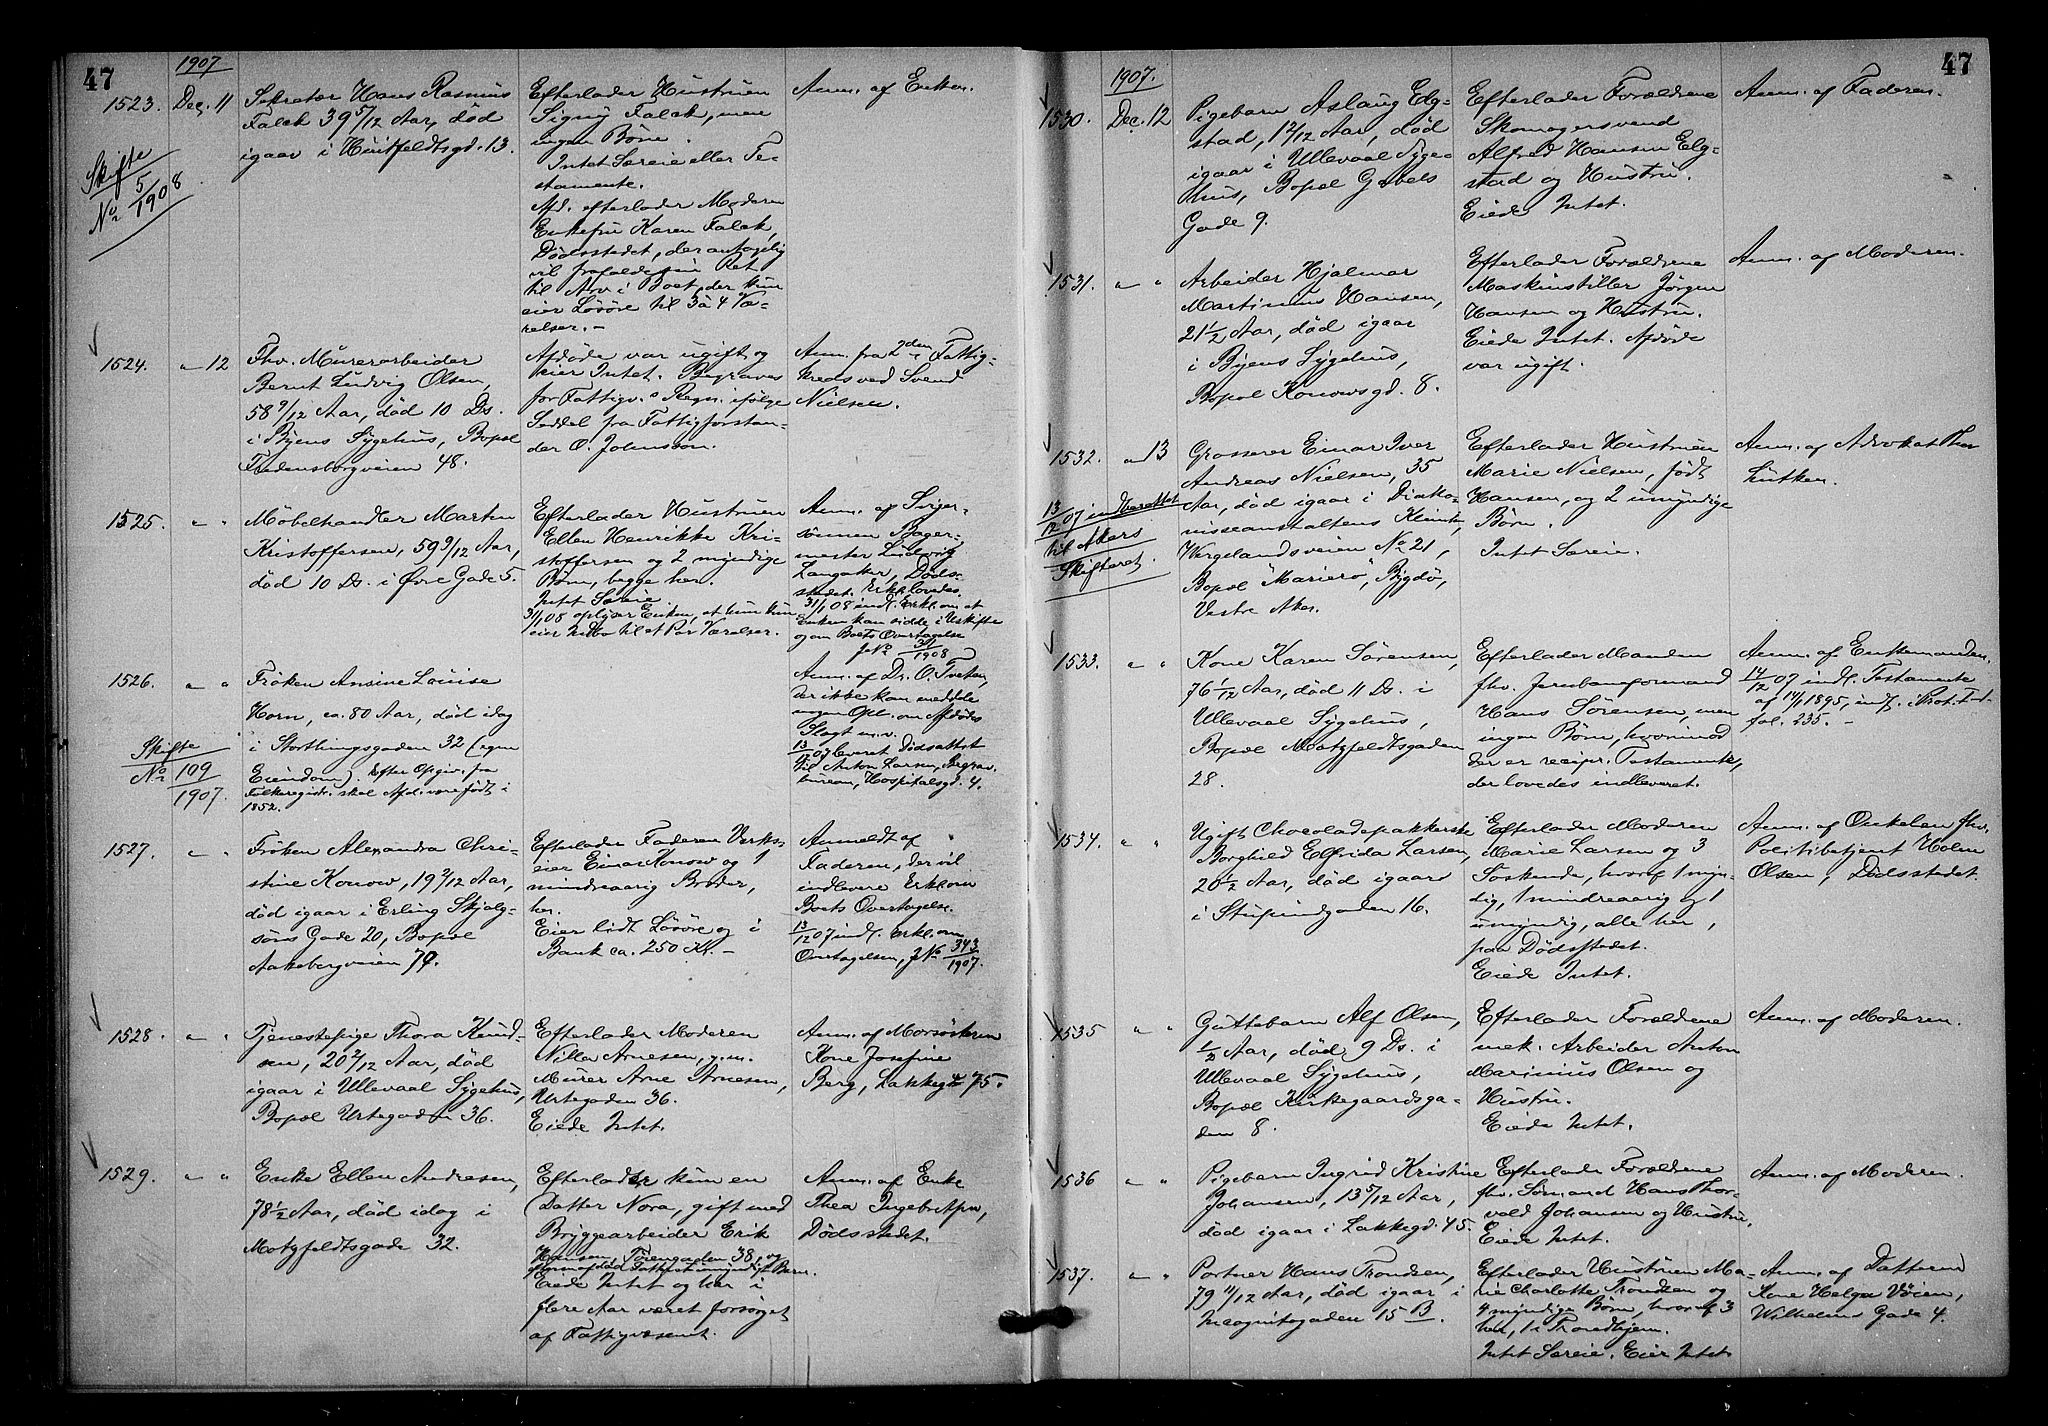 47
1907
1523. Dec. 11
Sekretær Hans Rasmus
Falck 39 5/12 Aar, død
igaar i Huitfeldtsgd. 13.
Efterlader Hustruen
Signy Falck, men
ingen Børn.
Intet Særeie eller Te-
stamente.
Afd. efterlader Moderen
Enkefru Karen Falck,
Dødsstedet, der antagelig
vil frafalde sin Ret
til Arv i Boet, der kun
eier Løsøre til 3 à 4 Væ-
relser. –
Anm. af Enken.
Skifte
No 5/1908
1524. " 12
Fhv. Murerarbeider
Bernt Ludvig Olsen,
58 9/12 Aar, død 10 Ds.
i Byens Sygehus, Bopæl
Fredensborgveien 48.
Afdøde var ugift og
eier Intet. Begraves
for Fattigv.s Regn. ifølge
Seddel fra Fattigforstan-
der O. Johnson.
Anm. fra 2den Fattig-
kreds ved Svend
Nielsen.
1525. " "
Møbelhandler Marten
Kristoffersen, 59 9/12 Aar,
død 10 Ds. i Øvre Gade 5.
Efterlader Hustruen
Ellen Henrikke Kri-
stoffersen og 2 myndige
Børn, begge her.
Intet Særeie
3/1 08 oplyser Enken, at hun kun
eier Indbo til et Par Værelser.
Anm. af Sviger-
sønnen Bager-
mester Ludvig
Langaker, Døds-
stedet. Erkl. lovedes.
31/1 08 indl. Erkl. om at
Enken kan sidde i Uskifte
og om Boets Overtagelse
J No 31/1908
1526. " "
Frøken Ansine Louise
Horn, ca. 80 Aar, død idag
i Storthingsgaden 32 (egen
Eiendom). Efter Opgiv. fra
Folkeregistr. skal Afd. være født i
1852.
Anm. af Dr. O. Tveten,
der ikke kan meddele
nogen Opl. om Afdødes
Slægt m.v.
13/12 07 leveret Dødsattest
til Anton Larsen, Begrav.
bureau, Hospitalsgd. 4.
Skifte
No 109/1907.
1527. " "
Frøken Alexandra Chri-
stine Konow, 19 2/12 Aar,
død igaar i Erling Skjalg-
søns Gade 20, Bopæl
Aakebergveien 74.
Efterlader Faderen Verks-
eier Einar Konow og 1
mindreaarig Broder,
her.
Eier lidt Løsøre og i
Bank ca. 250 Kr. –
Anmeldt af
Faderen, der vil
indlevere Erkl. om
Boets Overtagelse.
13/12 07 indl. Erkl. om
Overtagelsen, J No 343/1907.
1528. " "
Tjenestepige Thora Knud-
sen, 20 2/12 Aar, død
igaar i Ullevaal Sygehus,
Bopæl Urtegaden 36.
Efterlader Moderen
Nilla Arnesen, g.m.
Murer Arne Arnesen,
Urtegaden 36.
Eiede Intet.
Anm. af Morsøsteren
Kone Josefine
Berg, Lakkegt 75.
1529. " "
Enke Ellen Andresen,
78 1/2 Aar, død idag i
Motzfeldtsgade 32.
Efterlader kun en
Datter Nora, gift med
Bryggearbeider Erik
Hansen, Tøiengaden 38, og
Eiede Intet og har i
flere Aar været forsørget
af Fattigvæsenet.
Anm. af Enke
Thea Ingebretsen,
Dødsstedet.
47
1907.
1530. Dec. 12
Pigebarn Aslaug Elg-
stad, 12/12 Aar, død
igaar i Ullevaal Syge-
hus, Bopæl Gabels
Gade 9.
Efterlader Forældrene
Skomagersvend
Alfred Hansen Elg-
stad og Hustru.
Eiede Intet.
Anm. af Faderen.
1531. " "
Arbeider Hjalmar
Martinius Hansen,
21 1/2 Aar, død igaar
i Byens Sygehus,
Bopæl Konowsgd. 8.
Efterlader Forældrene
Maskinstiller Jørgen
Hansen og Hustru.
Eiede Intet. Afdøde
var ugift.
Anm. af Moderen.
1532. " 13
Grosserer Einar Iver
Andreas Nielsen, 35
Aar, død igaar i Diako-
nisseanstaltens Klinik,
Wergelandsveien No 21,
Bopæl "Mariero", Bygdø,
Vestre Aker.
Efterlader Hustruen
Marie Nielsen, født
Hansen, og 2 umyndige
Børn.
Intet Særeie.
Anm. af Advokat Thor
Lütken.
13/12 07 indberettet
til Akers
Skifteret.
1533. " "
Kone Karen Sørensen,
76 1/12 Aar, død 11 Ds. i
Ullevaal Sygehus,
Bopæl Motzfeldtsgaden
28.
Efterlader Manden
fhv. Jernbaneformand
Hans Sørensen, men
ingen Børn, hvorimod
der er recipr. Testamente,
der lovedes indleveret.
Anm. af Enkemanden.
14/12 07 indl. Testamente
af 17/1 1895, indf. i Prot. Tst.
fol. 235. –
1534. " "
Ugift Chocoladepakkerske
Borghild Elfrida Larsen,
20 1/2 Aar, død igaar
i Stupindgaden 16.
Efterlader Moderen
Marie Larsen og 3
Søskende, hvoraf 1 myn-
dig, 1 mindreaarig og 1
umyndig, alle her,
paa Dødsstedet.
Eiede Intet.
Anm. af Onkelen fhv.
Politibetjent Holm
Olsen, Dødsstedet.
1535 " "
Guttebarn Alf Olsen,
1/2 Aar, død 9 Ds. i
Ullevaal Sygehus,
Bopæl Kirkegaardsga-
den 8.
Efterlader Forældrene
mek. Arbeider Anton
Marinius Olsen og
Hustru.
Eiede Intet.
Anm. af Moderen.
1536 " "
Pigebarn Ingrid Kristine
Johansen, 13 5/12 Aar,
død igaar i Lakkegd. 45.
Efterlader Forældrene
fhv. Sømand Hans Thor-
vald Johansen og Hustru.
Eiede Intet.
Anm. af Moderen.
1537. " "
Portner Hans Trondsen,
79 11/12 Aar, død igaar i
Incognitogaden 15 B.
Efterlader Hustruen Ma-
rie Charlotte Trondsen og
4 myndige Børn, hvoraf 3
her, 1 i Trondhjem.
Intet Særeie. Eier Intet.
Anm. af Datteren
Kone Helga Vøien,
Wilhelms Gade 4.